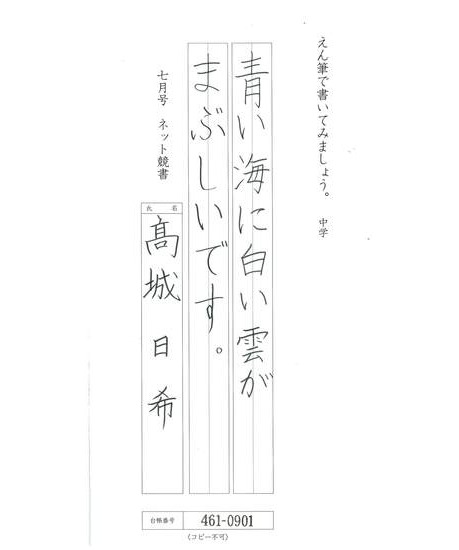 えん筆で書いてみましょう。 中学
青い海に白い雲が
まぶしいです。
七月号 ネット競書
氏名
髙城 日希
台帳番号 461-0901
〈コピー不可〉